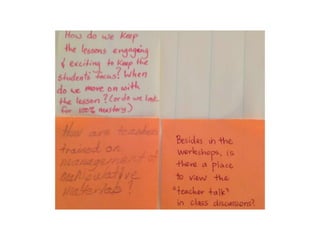 How do we keep
the lessons engaging
& exciting to keep the
students' focus? When
do we move on with
the lesson? (or do we look
for 100% mastery)
How are teachers
trained on
management of
manipulative
materials?
Besides in the
workshops, is
there a place
to view the
"teacher talk"
in class discussions?